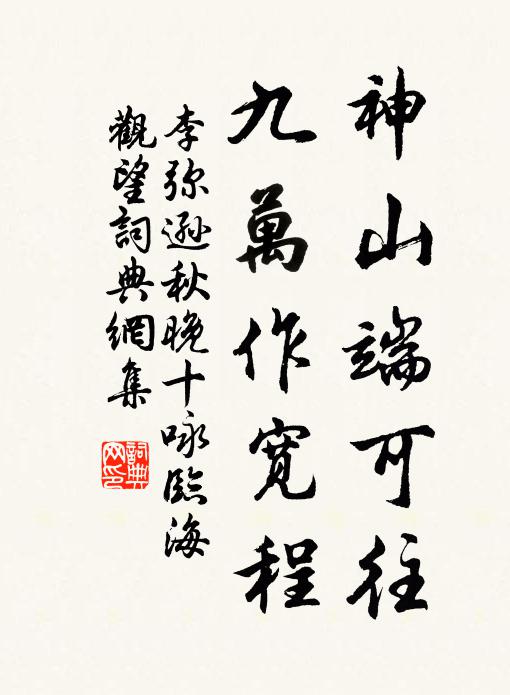 神山端可往
九萬作寬程
李弥遜秋晚十咏臨海
觀望詞典網集
詞典
网印